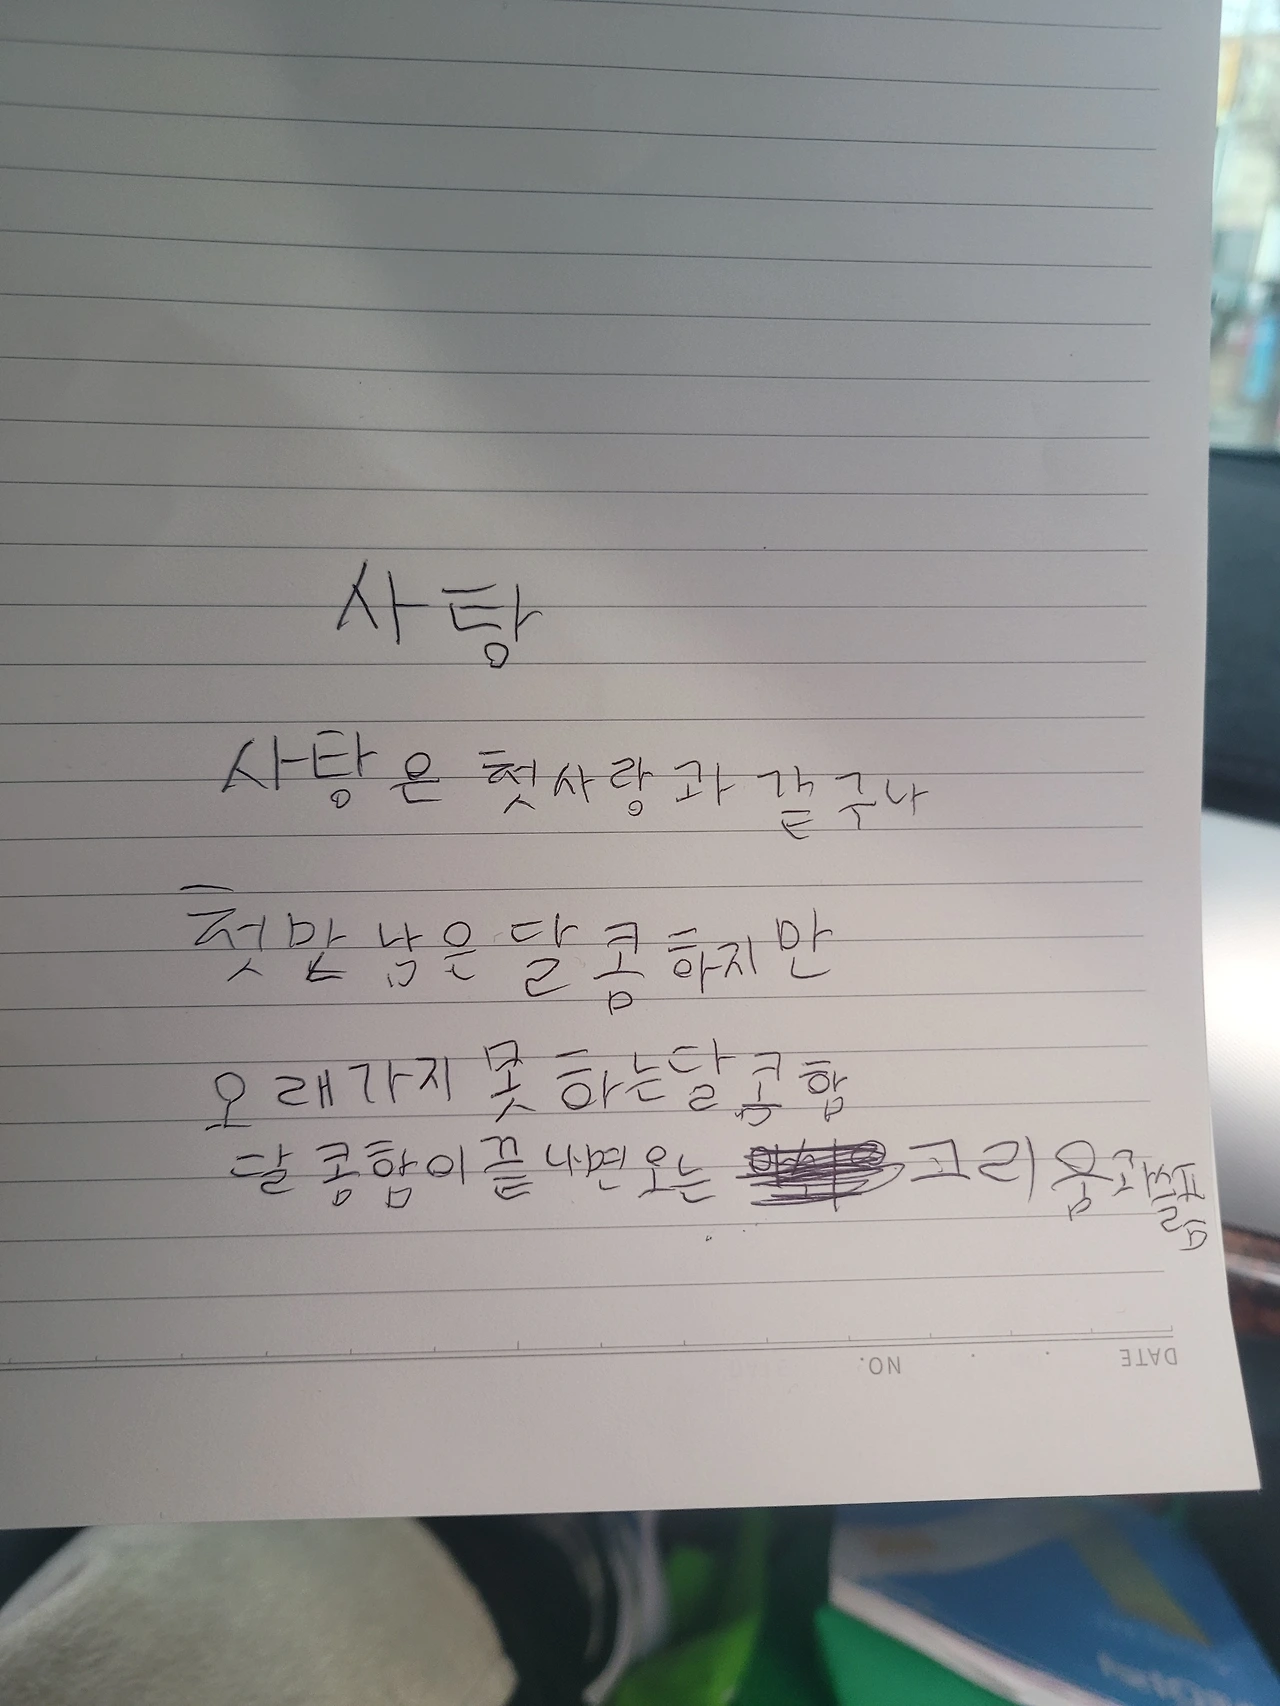 사탕
사탕은 첫사랑과 같구나
첫맛남은 달콤하지만
오래가지 못하는 달콤함
달콩함이 끝나면 오는 그리움과 슬픔
NO.
DATE